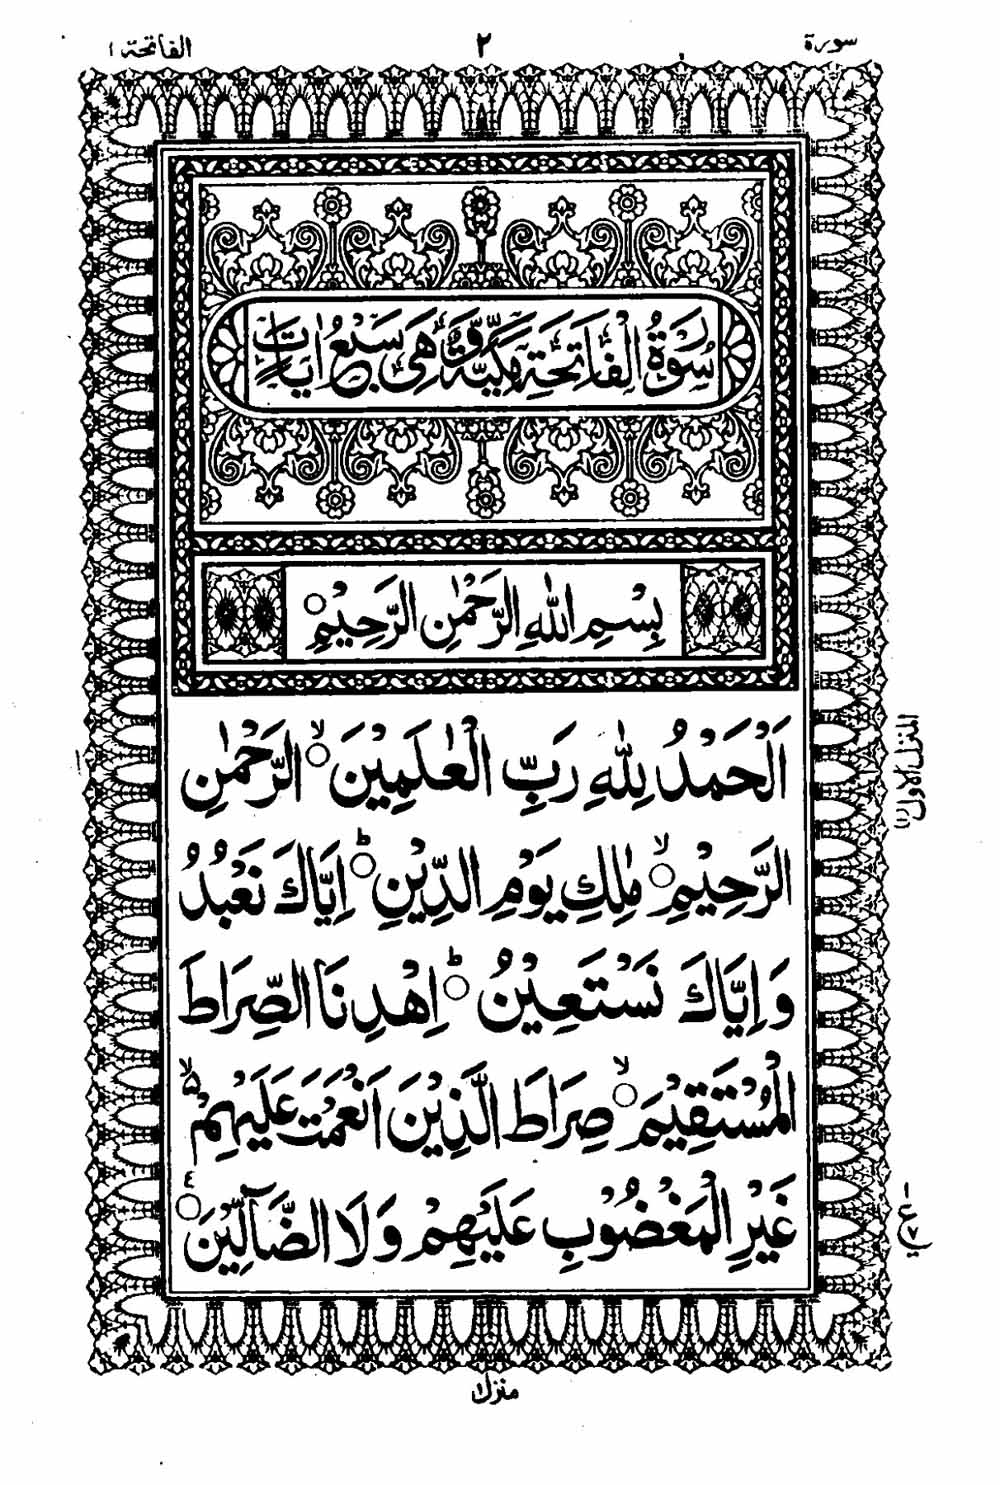 سورة
٢
الفاتحة ١
سُوْرَةُ الْفَاتِحَةِ مَكِّيَّةٌ وَّ هِىَ سَبْعُ اٰيَاتٍ
بِسْمِ اللّٰهِ الرَّحْمٰنِ الرَّحِيْمِ ○
اَلْحَمْدُ لِلّٰهِ رَبِّ الْعٰلَمِيْنَ ○ۙ الرَّحْمٰنِ
الرَّحِيْمِ ○ۙ مٰلِكِ يَوْمِ الدِّيْنِ ○ؕ اِيَّاكَ نَعْبُدُ
وَاِيَّاكَ نَسْتَعِيْنُ ○ؕ اِهْدِنَا الصِّرَاطَ
الْمُسْتَقِيْمَ ○ۙ صِرَاطَ الَّذِيْنَ اَنْعَمْتَ عَلَيْهِمْ ۵ۙ
غَيْرِ الْمَغْضُوْبِ عَلَيْهِمْ وَلَا الضَّآلِّيْنَ ○
المنزل الاول (١)
ع
منزل ١